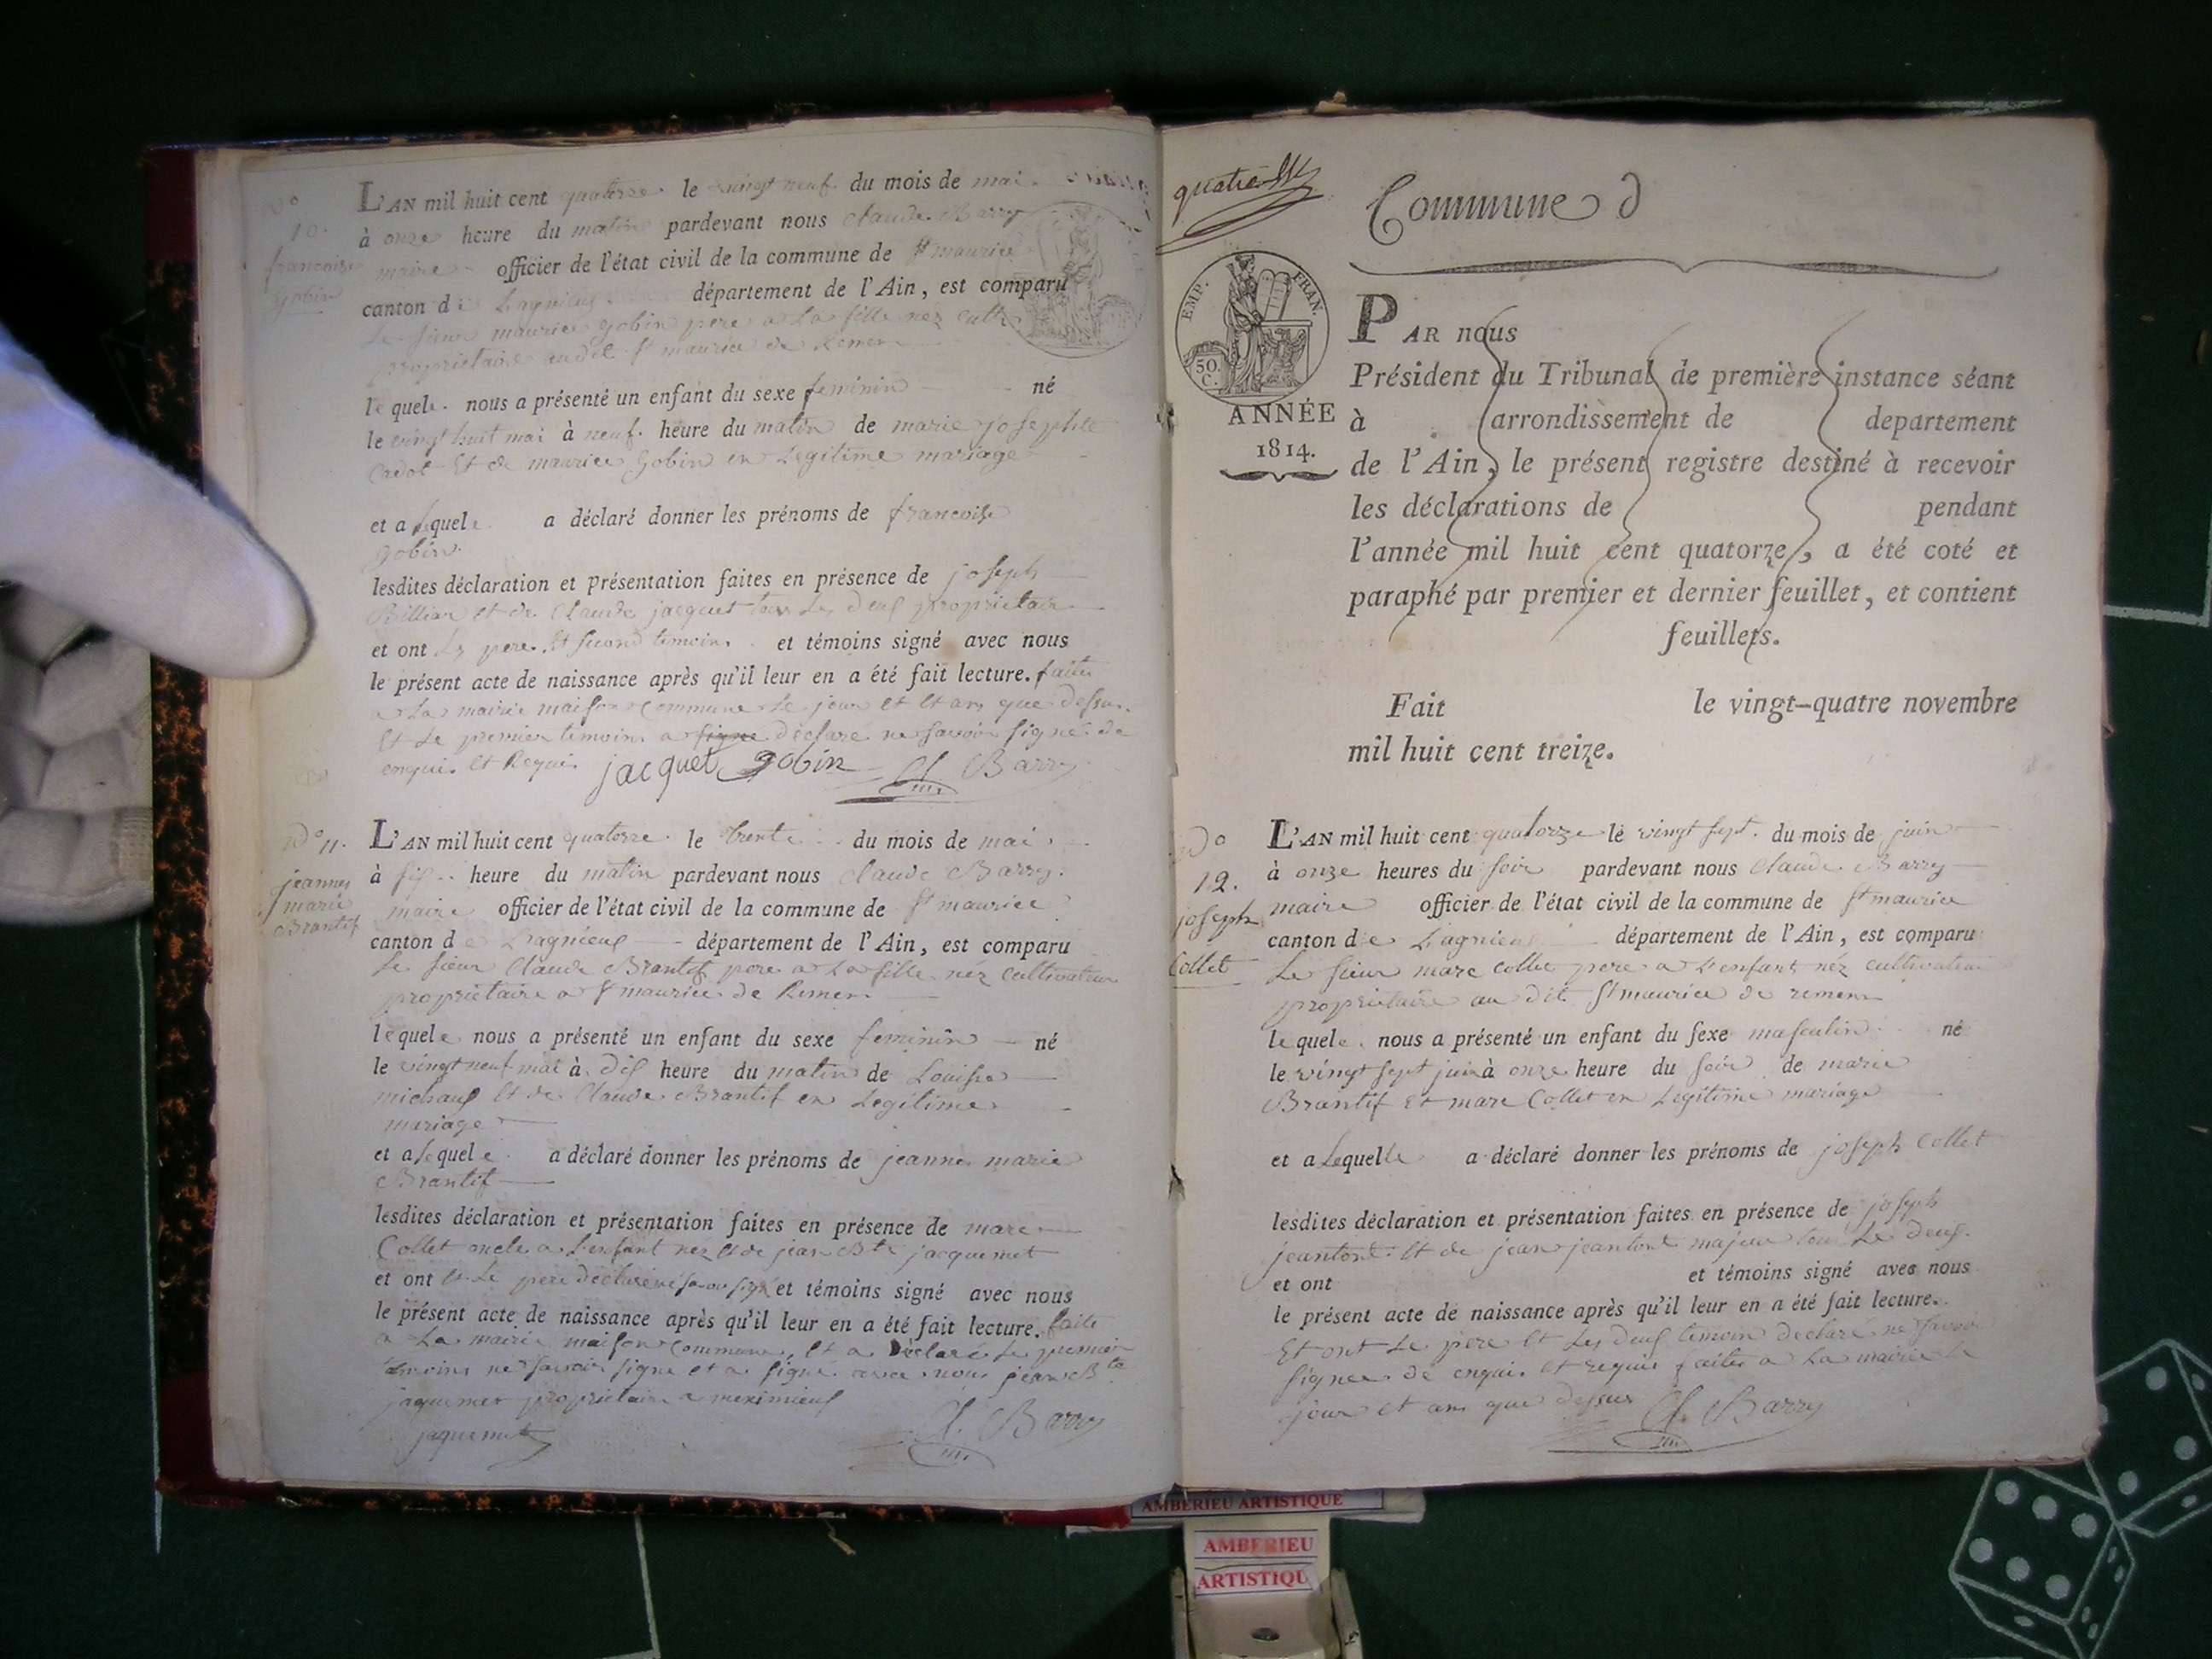 N°
10.
francoise
gobin
L'AN mil huit cent quatorze. le vingt neuf. du mois de mai.
à onze heure du matin pardevant nous claude Barry
maire officier de l'état civil de la commune de St maurice
canton de Lagnieu département de l'Ain, est comparu
le sieur maurice gobin pere a la fille nez cult
proprietaire audit St maurice de Remens
lequele. nous a présenté un enfant du sexe feminin né
le vingt huit mai à neuf. heure du matin de marie josephte
Cadot Et de maurice gobin en Legitime mariage
et a lequele a déclaré donner les prénoms de francoise
gobin.
lesdites déclaration et présentation faites en présence de joseph
Billion et de Claude jacquet tous les deux proprietaire
et ont Le pere. Et second temoins et témoins signé avec nous
le présent acte de naissance après qu'il leur en a été fait lecture. faites
a La mairie maison Commune le jour et Et ans que dessus.
Et Le premier temoins a signe déclaré ne savoir signé de
enquis Et Requis jacquet gobin Cl Barry
N° 11.
jeanne
marie
Brantif
L'AN mil huit cent quatorze. le trente du mois de mai
à six heure du matin pardevant nous claude Barry.
maire officier de l'état civil de la commune de St maurice
canton de Lagnieux département de l'Ain, est comparu
Le sieur Claude Brantif pere a La fille néz cultivateur
proprietaire a St maurice de Remens
lequele nous a présenté un enfant du sexe feminin né
le vingt neuf mai à dix heure du matin de Louise
michaux Et de Claude Brantif en Legitime
mariage
et a lequele a déclaré donner les prénoms de jeanne marie
Brantif
lesdites déclaration et présentation faites en présence de marc
Collet oncle a L'enfant nez Et de jean Bte jacquemet
et ont Et Le pere déclaré ne savoir signé et témoins signé avec nous
le présent acte de naissance après qu'il leur en a été fait lecture. faite
a La mairie maison Commune, Et a Déclaré Le premier
temoins ne savoir signe et a signé avec nous jean Bte
jaquemet proprietaire a meximieux
jaquemet Cl. Barry
quatre
Commune d
EMP. FRAN.
50.
C.
ANNÉE
1814.
PAR nous
Président du Tribunal de première instance séant
à arrondissement de departement
de l'Ain, le présent registre destiné à recevoir
les déclarations de pendant
l'année mil huit cent quatorze, a été coté et
paraphé par premier et dernier feuillet, et contient
feuillets.
Fait le vingt-quatre novembre
mil huit cent treize.
N°
12.
joseph
Collet
L'AN mil huit cent quatorze le vingt sept. du mois de juin
à onze heures du soir pardevant nous Claude Barry
maire officier de l'état civil de la commune de St maurice
canton de Lagnieux département de l'Ain, est comparu
Le sieur marc collet pere a L'enfant néz cultivateur
proprietaire au dit St maurice de remens
lequele. nous a présenté un enfant du sexe masculin né
le vingt sept juin à onze heure du soir de marie
Brantif Et marc Collet en Legitime mariage
et a Lequelle a déclaré donner les prénoms de joseph Collet
lesdites déclaration et présentation faites en présence de joseph
jeantont. Et de jean jeantont majeur tous Le deux.
et ont et témoins signé avec nous
le présent acte de naissance après qu'il leur en a été fait lecture.
Et ont Le pere Et Les deux temoin declaré ne savoir
signer de enquis. Et requis faites a La mairie Le
jour et ans que dessus Cl. Barry
AMBERIEU ARTISTIQUE
AMBERIEU
ARTISTIQU